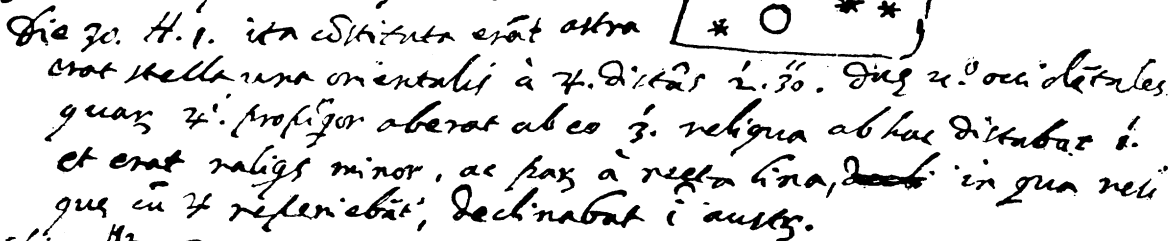 Die 30. H. 1. ita cõstituta erãt astra
erat stella una orientalis à ♃. distãs 2. 30. Duę u.º occidẽtales
quarꝫ ♃i. propĩqor aberat ab eo 3. reliqua ab hac distabat 1.
et erat reliqs minor, ac parꝫ à recta lina, in qua reli
quę cũ ♃ reperiebãt, declinabat ĩ austꝫ.